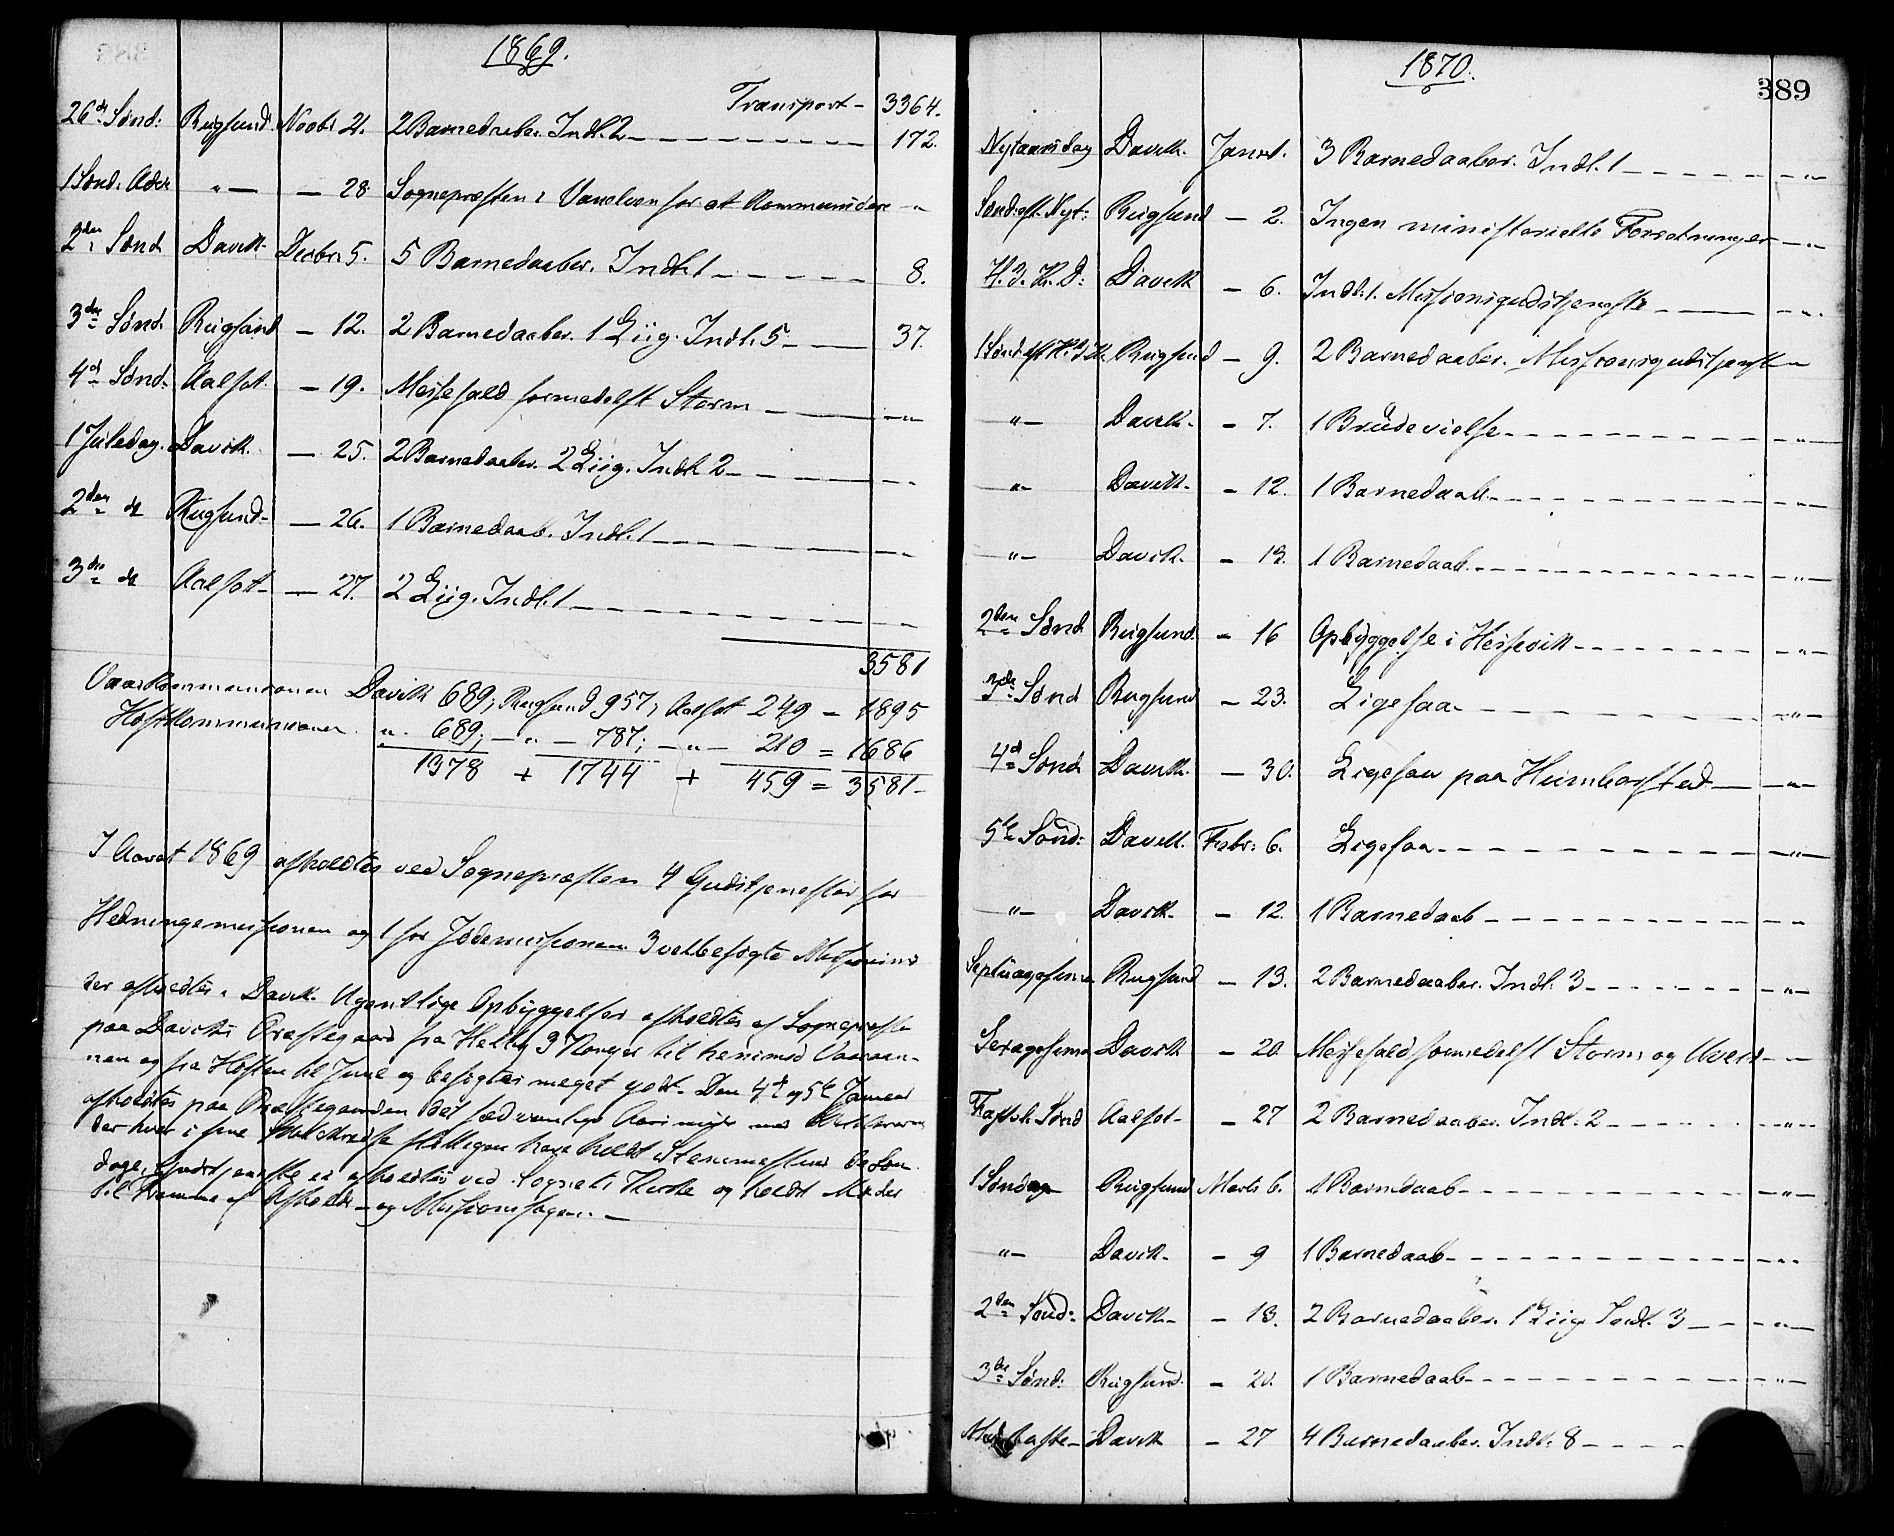 1869.
Transport - 3364.
26de Sønd: Rugsund Novbr 21. 2 Barnedaaber. Indl. 2 - 172.
1 Sønd. Advt " - 28. Sognepræsten i Vanelven for at Kommunicere - "
2den Sønd Davik Decbr: 5. 5 Barnedaaber. Indl. 1 - 8.
3die Sønd. Rugsund - 12. 2 Barnedaaber. 1 Liig. Indl. 5 - 37.
4de Sønd. Aalfot - 19. Messefald formedelst Storm - "
1 Juledag. Davik. - 25. 2 Barnedaaber. 2 Liig. Indl. 2 - "
2den dt Rugsund - 26. 1 Barnedaab. Indl. 1 - "
3die dt Aalfot - 27. 2 Liig. Indl. 1 - "
3581
Vaarkommunionen Davik 689; Rugsund 957; Aalfot 249 = 1895
Høstkommunionen " 689; - " - 787; - " - 210 = 1686
1378 + 1744 + 459 = 3581 -
I Aaret 1869 afholdtes ved Sognepræsten 4 Gudstjenester for
Hedningemissionen og 1 for Jødemissionen 3 velbesøgte Missionsmø
der afholdtes i Davik. Ugentlige Opbyggelser afholdtes af Sognepræsten
paa Daviks Præstegaard fra Hellig 3 Konger til henimod Vaaraan-
nen og fra Høsten til Juul og besøgtes meget godt. Den 4de og 5te Januar
afholdtes paa Præstegaarden det sædvanlige Aarsmøde med
der hver i sine have holdt Søn
dags. Gudstjeneste ei afholdtes ved Sognets Kirke og holdt Møder
til Fremme af Afholds- og Missionssagen. -
1870.
389
Nytaarsdag Davik. Janr 1. 3 Barnedaaber. Indl. 1 - "
Sønd: eft. Nyt: Rugsund - 2. Ingen ministerielle Forretninger - "
H. 3. K. D: Davik - 6. Indl. 1. Missionsgudstjeneste - "
1 Sønd eft H. 3 K. Rugsund - 9. 2 Barnedaaber. Missionsgudstjeneste - "
" Davik - 7. 1 Brudevielse - "
" Davik - 12. 1 Barnedaab - "
" Davik - 13. 1 Barnedaab - "
2den Sønd Rugsund - 16 Opbyggelse i Hessevik - "
3die Sønd Rugsund - 23. Ligesaa - "
4de Sønd Davik - 30. Ligesaa paa Humborstad - "
5te Sønd: Davik. Febr: 6. Ligesaa - "
" Davik - 12. 1 Barnedaab - "
Septuagesima Rugsund - 13. 2 Barnedaaber. Indl. 3 - "
Sexagesima Davik - 20. Messefald formedelst Storm og Uveir - "
Fastel. Sønd Aalfot - 27 2 Barnedaaber. Indl. 2 - "
1 Søndag Rugsund Marts 6. 1 Barnedaab - "
" Davik - 9 1 Barnedaab - "
2den Sønd: Davik - 13. 2 Barnedaaber. 1 Liig Indl. 3 - "
3die Sønd: Rugsund. - 20. 1 Barnedaab - "
Midfaste - Davik - 27 4 Barnedaaber. Indl. 8 -